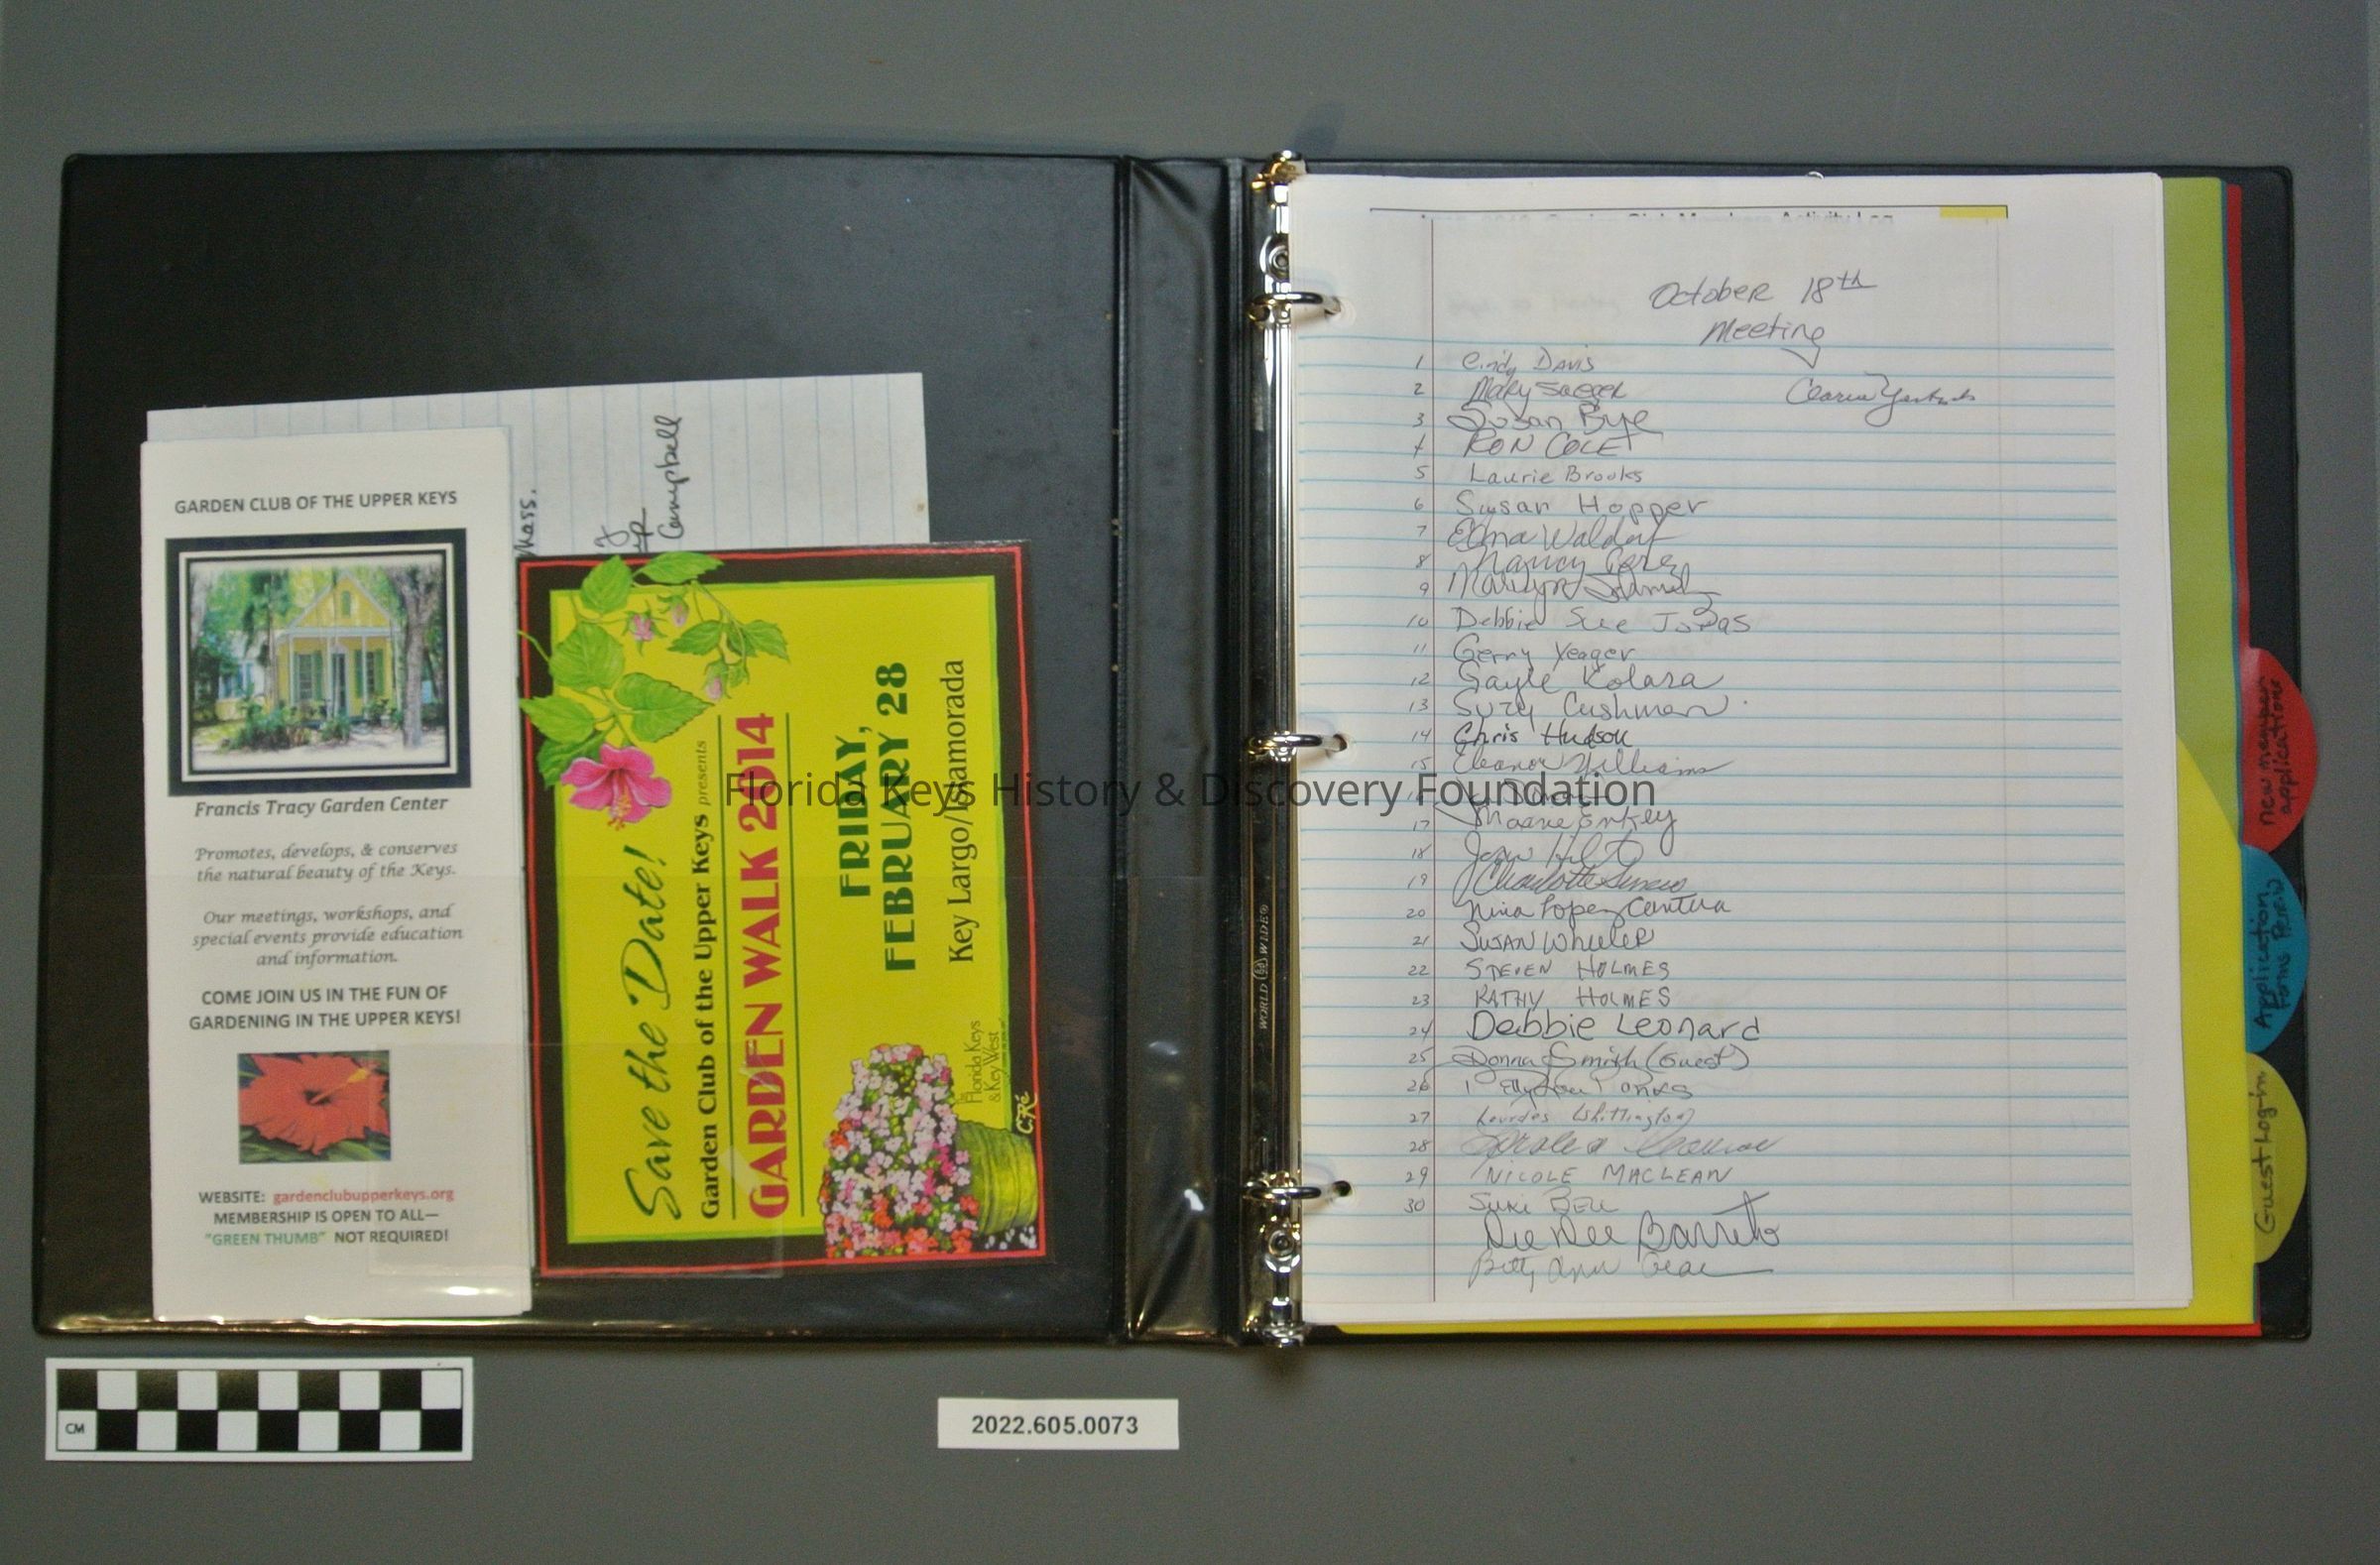 GARDEN CLUB OF THE UPPER KEYS
Francis Tracy Garden Center
Promotes, develops, & conserves
the natural beauty of the Keys.
Our meetings, workshops, and
special events provide education
and information.
COME JOIN US IN THE FUN OF
GARDENING IN THE UPPER KEYS!
WEBSITE: gardenclubupperkeys.org
MEMBERSHIP IS OPEN TO ALL—
"GREEN THUMB" NOT REQUIRED!
Mass.
Campbell
Save the Date!
Garden Club of the Upper Keys presents
GARDEN WALK 2014
FRIDAY,
FEBRUARY 28
Key Largo/Islamorada
The Florida Keys
& Key West
C.Ré
WORLD WIDE®
October 18th
Meeting
1 Cindy Davis
2 Mary
3 Susan Bye
4 RON COLE
5 Laurie Brooks
6 Susan Hopper
7 Elma Waldorf
8 Nancy Perez
9 Marilyn
10 Debbie Sue
11 Gerry Yeager
12 Gayle Kolara
13 Suzy Cushman
14 Chris Hudson
15 Eleanor Williams
16
17
18
19 Charlotte
20 Nina Lopez Cantera
21 SUSAN Wheeler
22 STEVEN HOLMES
23 KATHY HOLMES
24 Debbie Leonard
25 Donna Smith (Guest)
26
27 Lourdes Whittington
28
29 NICOLE MACLEAN
30 Suki Bell
Dee Dee Barreto
Betty Ann
new member applications
Application Forms
Guest Log-in
Florida Keys History & Discovery Foundation
CM
2022.605.0073